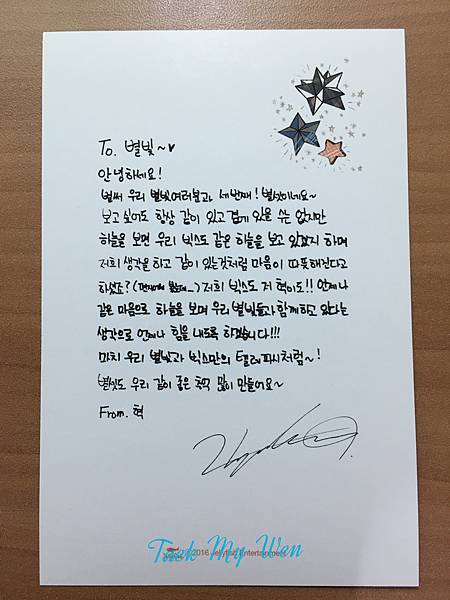 To. 별빛~♥
안녕하세요!
벌써 우리 별빛여러분과 세번째! 별싯이네요~
보고 싶어도 항상 같이 있고 곁에 있을 수는 없지만
하늘을 보면 우리 빅스도 같은 하늘을 보고 있겠지 하며
저희 생각을 하고 같이 있는것처럼 마음이 따뜻해진다고
하셨죠? (편지에서 봤는데...) 저희 빅스도 저 혁이도!! 언제나
같은 마음으로 하늘을 보며 우리 별빛들과 함께하고 있다는
생각으로 언제나 힘을 내도록 하겠습니다!!!
마치 우리 별빛과 빅스만의 텔레파시처럼~!
별싯도 우리 같이 좋은 추억 많이 만들어요~
From. 혁
2016 Jellyfish Entertainment
Taek My Wen